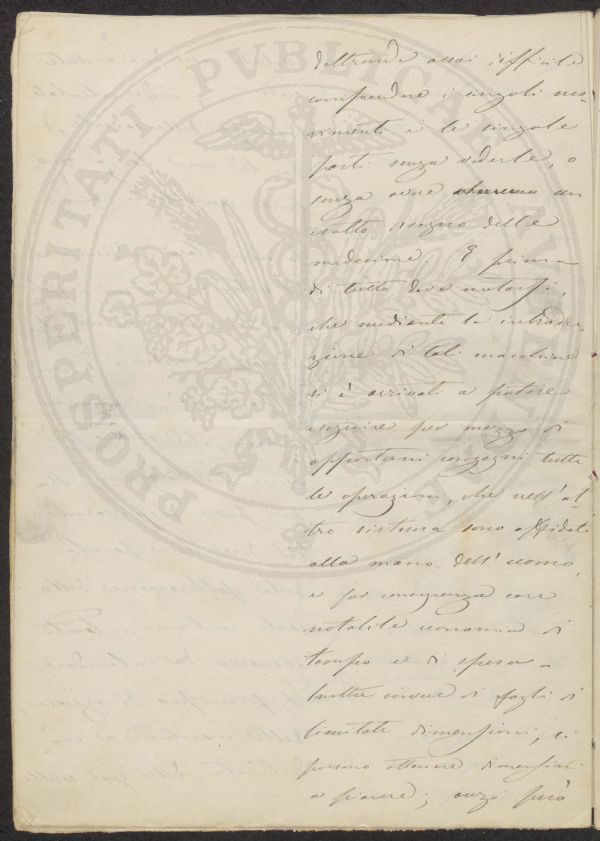 d'altronde assai difficile
comprendere i singoli mo-
vimenti e le singole
parti senza vederle, o
senza avere almeno un
esatto disegno delle
medesime. E prima
di tutto deve notarsi,
che mediante la introdu-
zione di tali macchine
si è arrivati a potere
eseguire per mezzo di
opportuni congegni tutte
le operazioni, che nell'al-
tro sistema sono affidate
alla mano dell'uomo,
e per conseguenza con
notabile economia di
tempo e di spesa.
Inoltre invece di fogli di
limitate dimensioni, si
possono ottenere dimensioni
a piacere; anzi però
PROSPERITATI PVBLICAE